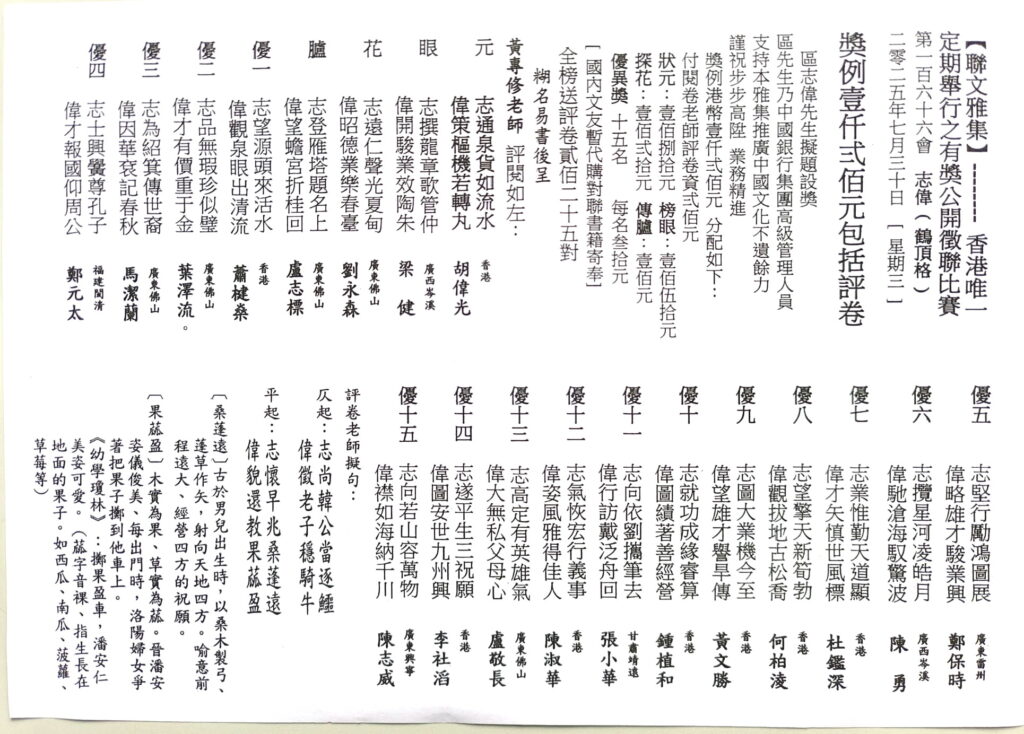 【聯文雅集】--------- 香港唯一
定期舉行之有獎公開徵聯比賽
第一百六十六會 志偉(鶴頂格)
二零二五年七月三十日 [星期三]
獎例壹仟弍佰元包括評卷
區志偉先生擬題設獎
區先生乃中國銀行集團高級管理人員
支持本雅集推廣中國文化不遺餘力
謹祝步步高陞 業務精進
獎例港幣壹仟弍佰元 分配如下:
付閱卷老師評卷資弍佰元
狀元:壹佰捌拾元 榜眼:壹佰伍拾元
探花:壹佰弍拾元 傳臚:壹佰元
優異獎 十五名 每名叁拾元
[國內文友暫代購對聯書籍寄奉]
全榜送評卷貳佰二十五對
糊名易書後呈
黃專修老師 評閱如左:
元 志通泉貨如流水
偉策樞機若轉丸 香港 胡偉光
眼 志撰龍章歌管仲
偉開駿業效陶朱 廣西岑溪 梁健
花 志遠仁聲光夏甸
偉昭德業樂春臺 廣東佛山 劉永森
臚 志登雁塔題名上
偉望蟾宮折桂回 廣東佛山 盧志標
優一 志望源頭來活水
偉觀泉眼出清流 香港 蕭楗桑
優二 志品無瑕珍似璧
偉才有價重于金 廣東佛山 葉澤流。
優三 志為紹箕傳世裔
偉因華袞記春秋 廣東佛山 馬潔蘭
優四 志士興黌尊孔子
偉才報國仰周公 福建閩清 鄭元太
優五 志堅行勵鴻圖展
偉略雄才駿業興 廣東雷州 鄭保時
優六 志攬星河凌皓月
偉馳滄海馭驚波 廣西岑溪 陳勇
優七 志業惟勤天道顯
偉才矢慎世風標 香港 杜鑑深
優八 志望擎天新筍勃
偉觀拔地古松喬 香港 何柏淩
優九 志圖大業機今至
偉望雄才譽早傳 香港 黃文勝
優十 志就功成緣睿算
偉圖績著善經營 香港 鍾植和
優十一 志向依劉攜筆去
偉行訪戴泛舟回 甘肅靖遠 張小華
優十二 志氣恢宏行義事
偉姿風雅得佳人 香港 陳淑華
優十三 志高定有英雄氣
偉大無私父母心 廣東佛山 盧敬長
優十四 志遂平生三祝願
偉圖安世九州興 香港 李社滔
優十五 志向若山容萬物
偉襟如海納千川 廣東興寧 陳志威
評卷老師擬句:
仄起:志尚韓公當逐鱷
偉徵老子穩騎牛
平起:志懷早兆桑蓬遠
偉貌還教果蓏盈
[桑蓬遠]古於男兒出生時,以桑木製弓、
蓬草作矢,射向天地四方。喻意前
程遠大、經營四方的祝願。
[果蓏盈]木實為果、草實為蓏。晉潘安
姿儀俊美、每出門時,洛陽婦女爭
著把果子擲到他車上。
《幼學瓊林》:擲果盈車,潘安仁
美姿可愛。(蓏字音裸、指生長在
地面的果子。如西瓜、南瓜、菠蘿、
草莓等)